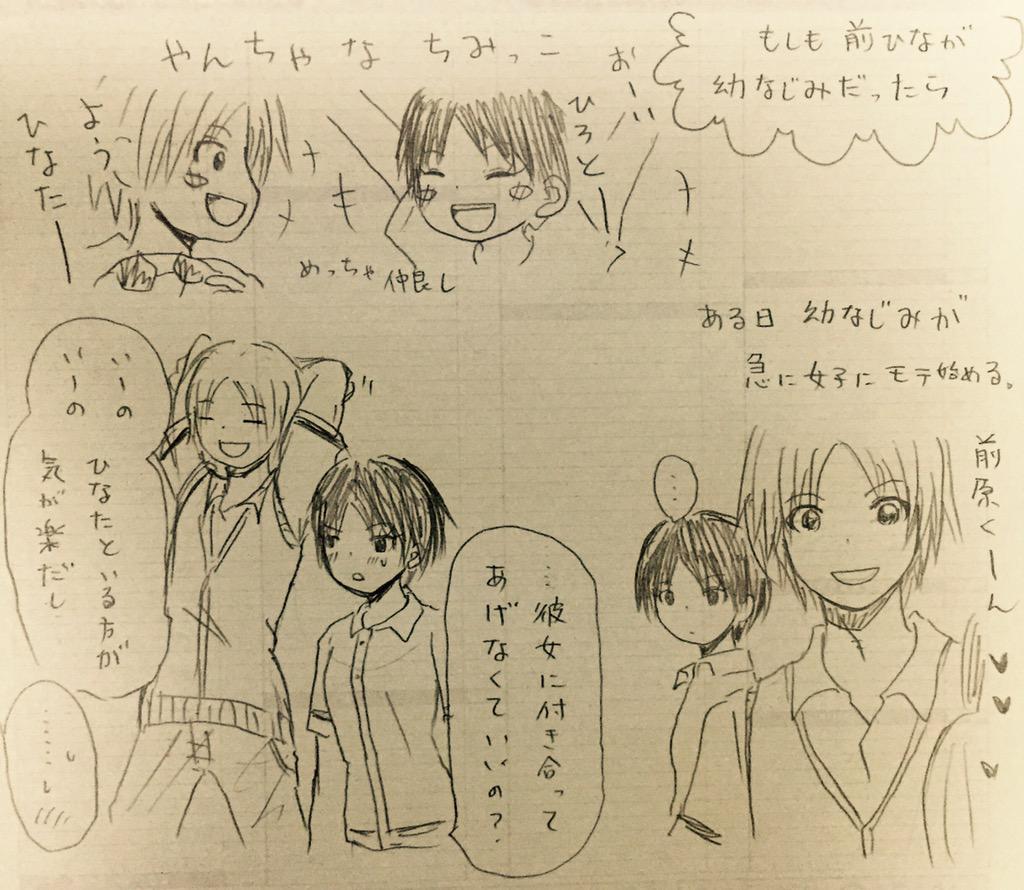 もしも前ひなが
幼なじみだったら
やんちゃなちみっこ
おーい
ひろとー
よう、
ひなたー
めっちゃ仲良し
ある日幼なじみが
急に女子にモテ始める。
前原くーん
……
…彼女に付き合って
あげなくていいの?
いーの
いーの
ひなたといる方が
気が楽だし